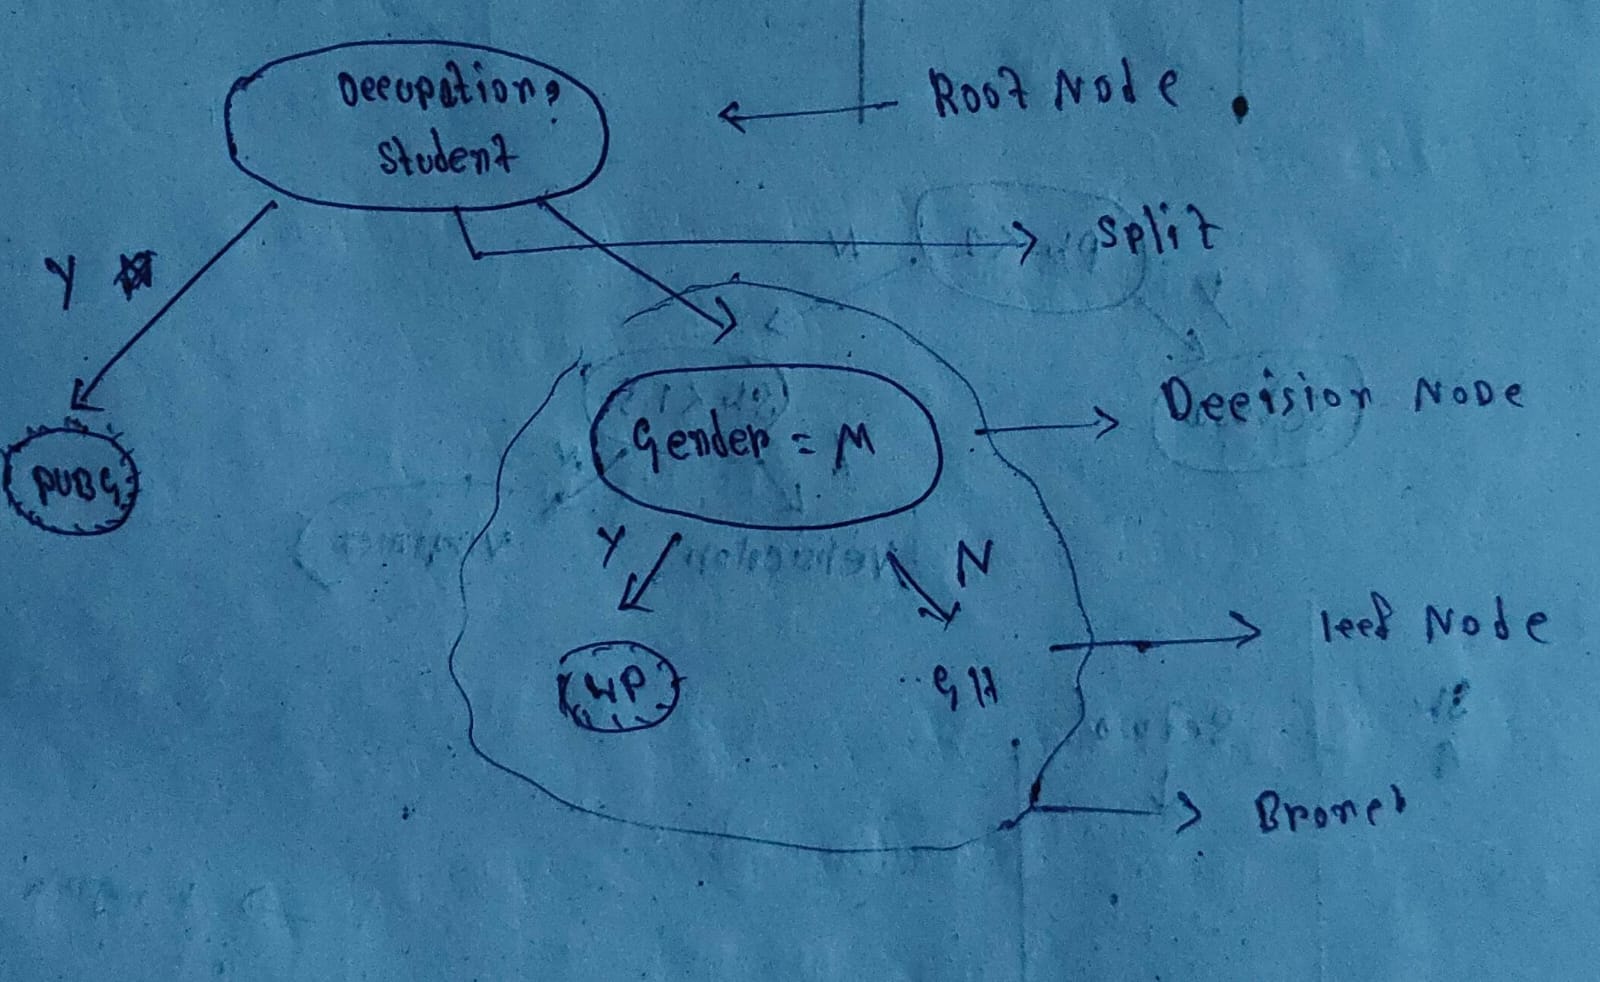 Occupation?
Student
Root Node
Split
Y
Gender = M
Decision Node
PUBG
Y
N
leef Node
WP
GH
Branch